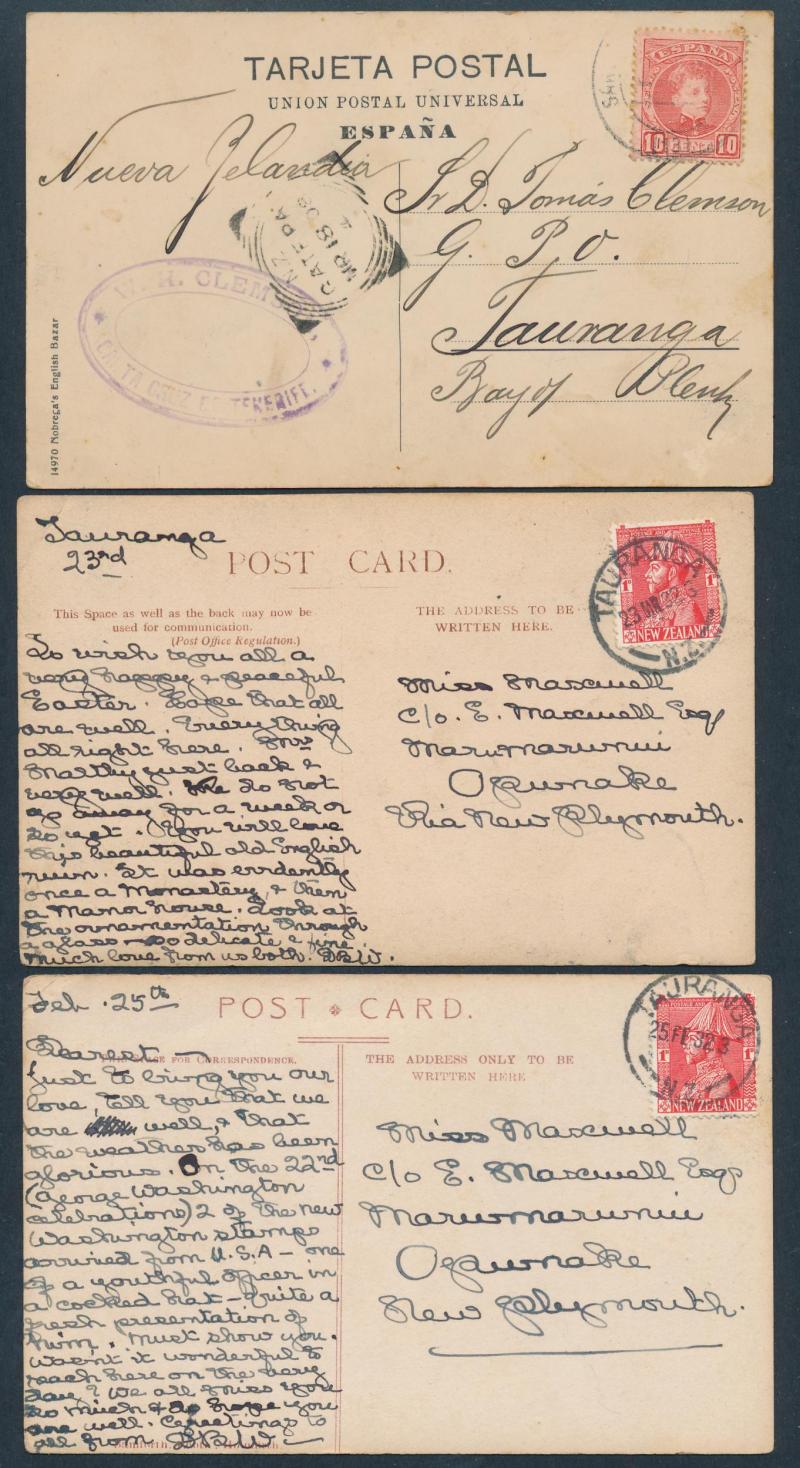 TARJETA POSTAL
UNION POSTAL UNIVERSAL
ESPAÑA
ESPAÑA
10 CENT 10
Nueva Zelandia
Sr D. Tomás Clemson
G. P. O.
Tauranga
Bay of Plenty
NZ
GATE PA
MR 18 09
4
W. H. CLEMSON
SANTA CRUZ DE TENERIFE.
14970 Nobrega's English Bazar
Tauranga
23rd
POST CARD.
This Space as well as the back may now be
used for communication.
(Post Office Regulation.)
To wish you all a
very happy & peaceful
Easter. Hope that all
are well. Everything
all right here. Mrs
just back &
very well. We do not
go away for a week or
so yet. You will love
this beautiful old English
ruin. It was evidently
once a Monastery, & then
a Manor house. Look at
the ornamentation through
a glass - so delicate & fine
Much love from us both. DBW.
THE ADDRESS TO BE
WRITTEN HERE.
TAURANGA
23 MR 32
N.Z.
1D 1D
NEW ZEALAND
Miss Maxwell
c/o. E. Maxwell Esq
Marumarunui
Opunake
Via New Plymouth.
Feb. 25th
POST CARD.
THIS SPACE FOR CORRESPONDENCE.
Dearest -
Just to bring you our
love, tell you that we
are well, & that
the weather has been
glorious. On the 22nd
(George Washington
celebrations) 2 of the new
Washington stamps
arrived from U.S.A - one
of a youthful officer in
a cocked hat - Quite a
fresh presentation of
him. Must show you.
Wasn't it wonderful to
reach here on the very
day? We all miss you
so much & do hope you
are well. Greetings to
all from DBW -
THE ADDRESS ONLY TO BE
WRITTEN HERE
TAURANGA
25 FE 32 3
N.Z.
1D 1D
NEW ZEALAND
Miss Maxwell
c/o E. Maxwell Esq
Marumarunui
Opunake
New Plymouth.